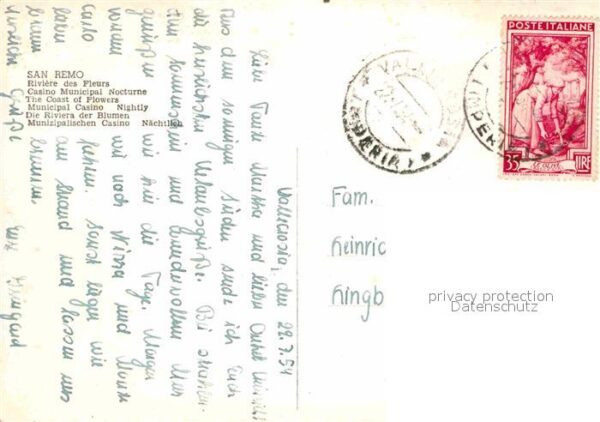 SAN REMO
Rivière des Fleurs
Casino Municipal Nocturne
The Coast of Flowers
Municipal Casino Nightly
Die Riviera der Blumen
Munizipalischen Casino Nächtlich
Vallecrosia, den 22.7.54
Liebe Tante Martha und lieber Onkel Heinrich
Aus dem sonnigen Süden sende ich Euch
die herzlichsten Urlaubsgrüße. Bei strahlen-
dem Sonnenschein und wundervollem Meer
genießen wir hier die Tage. Morgen
wollen wir nach Nizza und Monte
Carlo fahren. Sonst liegen wir
am Strand und lassen uns
braun brennen.
Herzliche Grüße
Eure
POSTE ITALIANE
35 LIRE
VALLECROSIA
(IMPERIA)
IMPERIA
Fam.
Heinric
Hingb
privacy protection
Datenschutz